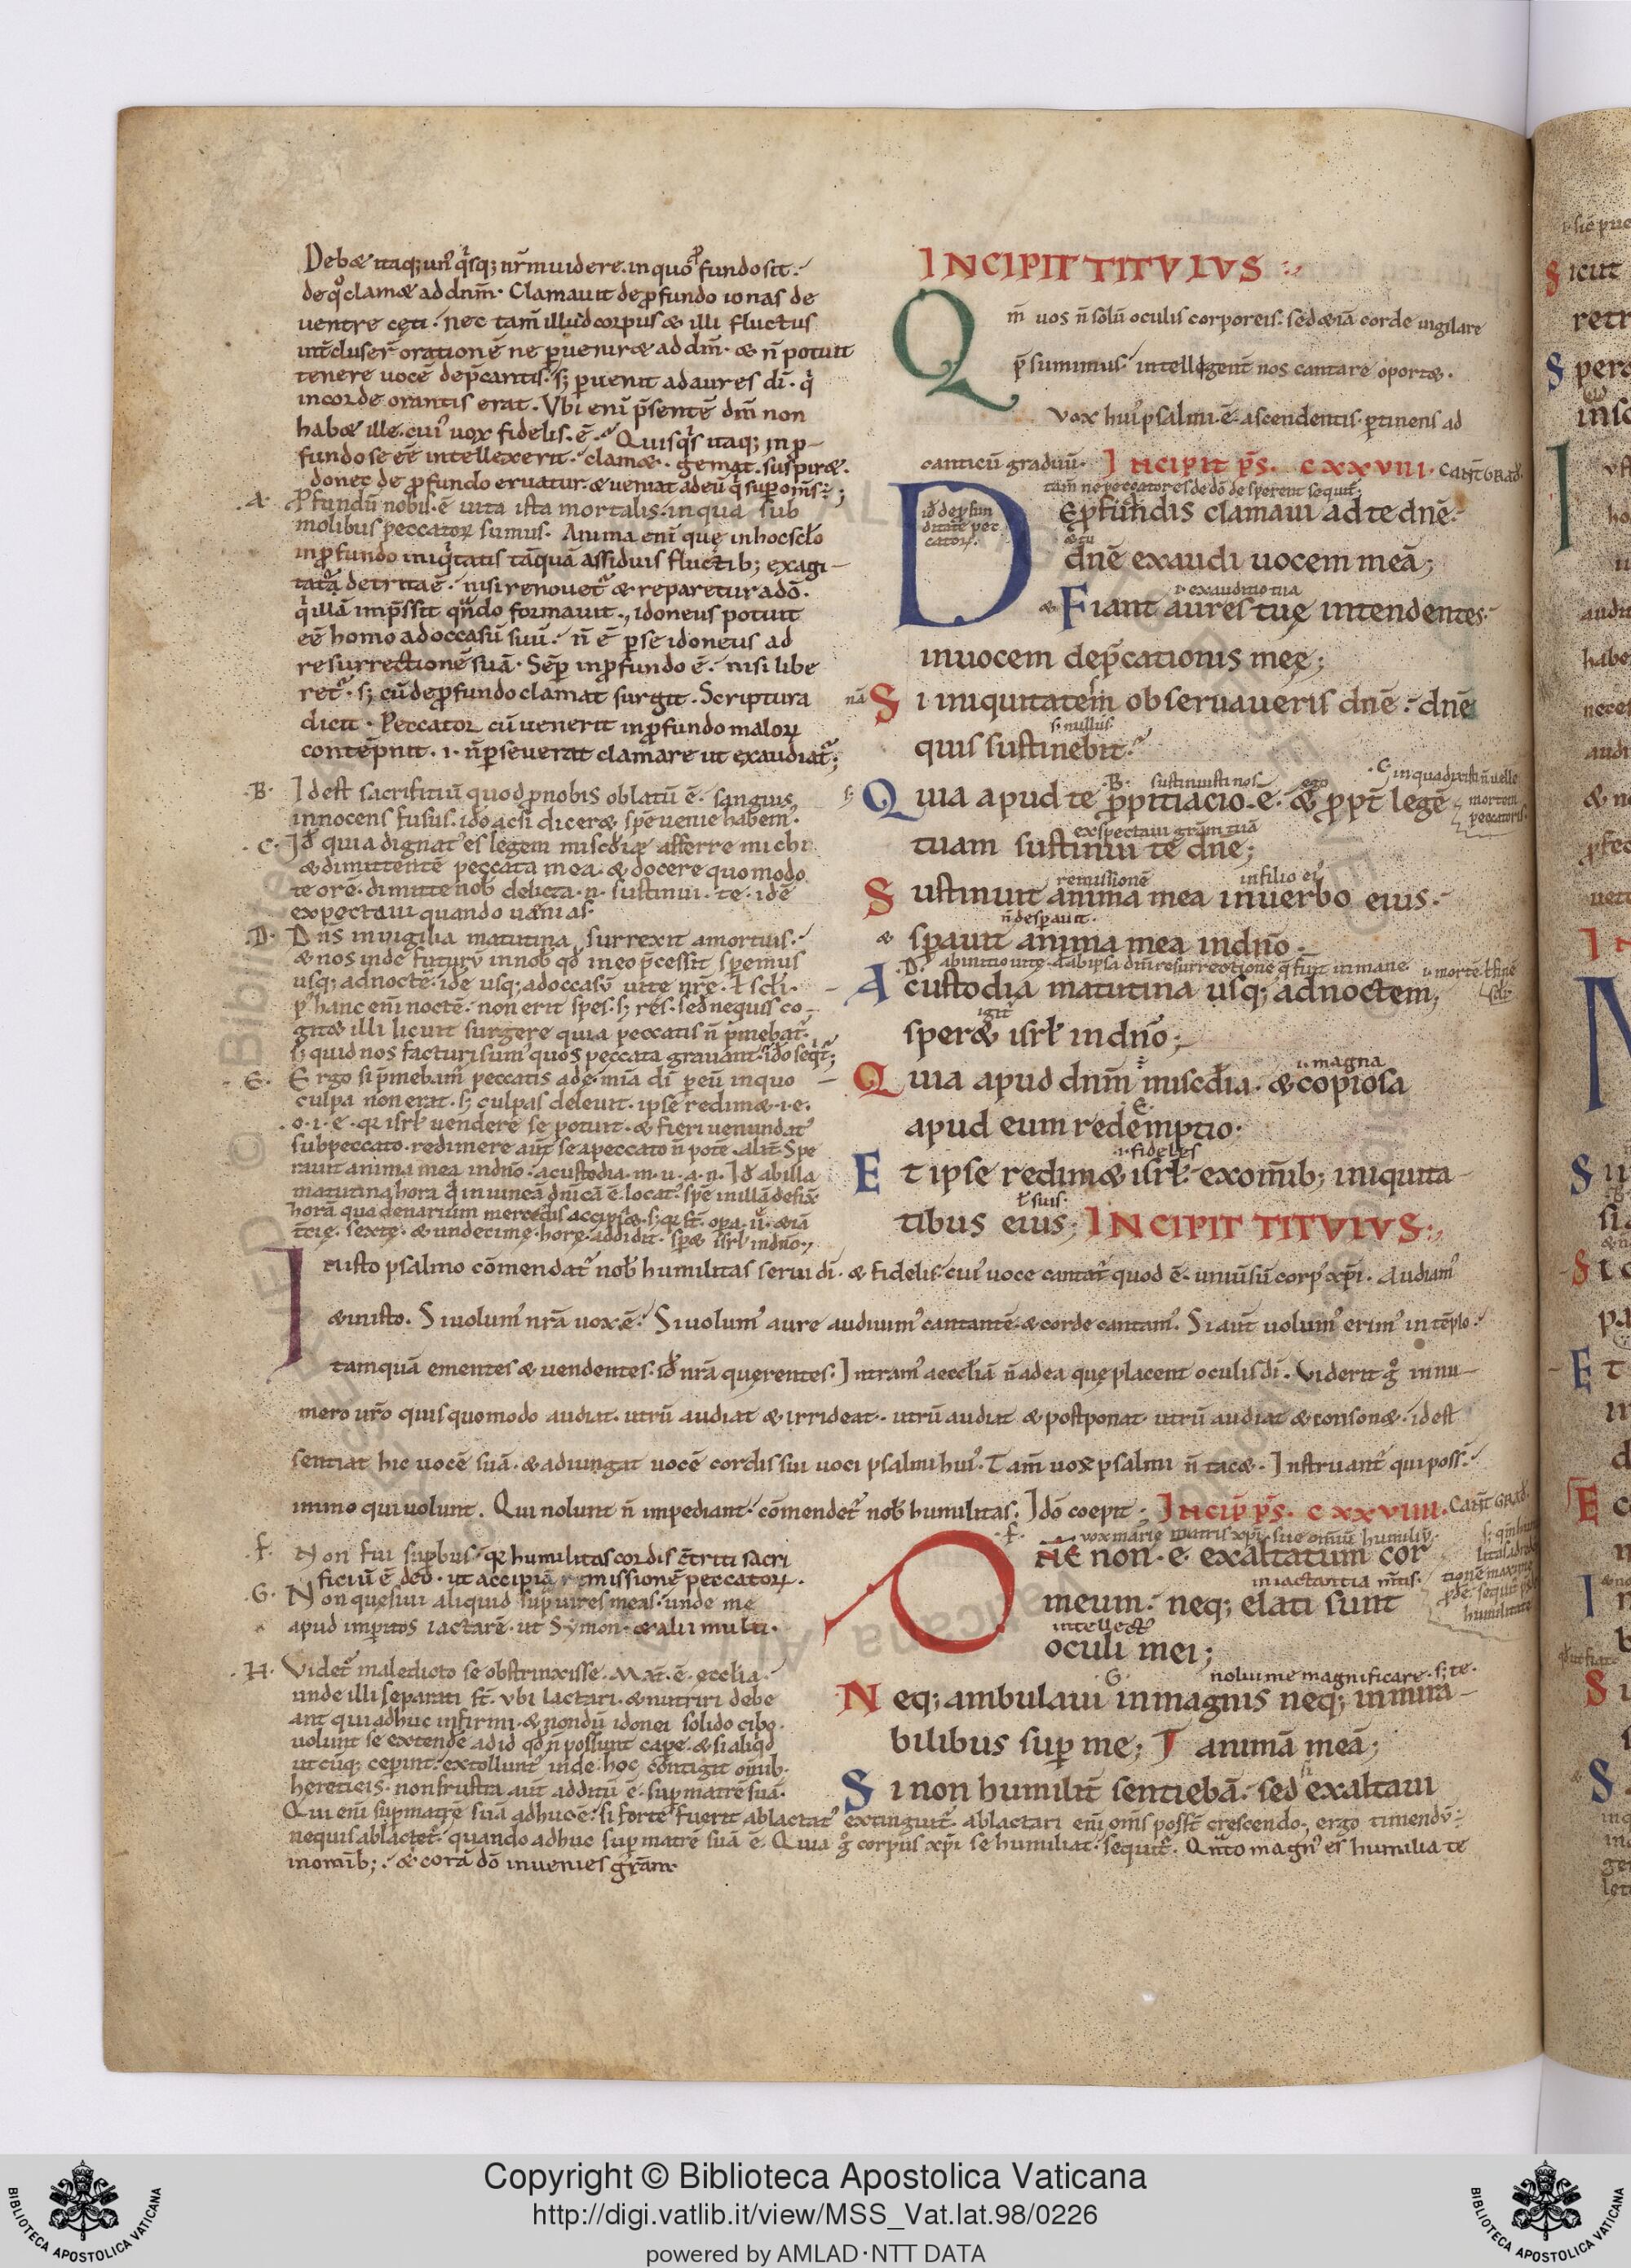 Debet itaq; un' q'sq; nr̄m uidere. in quo ꝓfundo sit.
de q° clamet ad dnm̄. Clamauit de ꝓfundo ionas de
uentre cęti. nec tam̄ illud corpus & illi fluctus
int̄cluser̄ orationē ne ꝑueniret ad dm̄. & n̄ potuit
tenere uocē dep̄cantis. s; ꝑuenit ad aures di. q'
in corde orantis erat. Vbi eni p̄sentē dm̄ non
habet ille. cui' uox fidelis .ē. Quisq's itaq; in ꝓ-
fundo se eē intellexerit. clamet. gemat. suspiret.
donec de ꝓfundo eruatur & ueniat ad eū q' suꝑ om̄s;
.A. Ꝓfundū nobis .ē uita ista mortalis. in qua sub
molibus peccatorꝝ sumus. Anima eni quę in hoc scło
in ꝓfundo iniq'tatis tāquā assiduis fluctib; exagi-
tat̄ detrita ē. nisi renouet̄ & reparetur a dō.
q' illā imp̄ssit qn̄do formauit. idoneus potuit
eē homo ad occasū suū. n̄ ē ꝑ se idoneus ad
resurrectionē suā. Sēp in ꝓfundo ē. nisi libe
ret̄. s; cū de ꝓfundo clamat surgit. Scriptura
dicit. Peccator cū uenerit in ꝓfundo malorꝝ
contēpnit. .i. n̄ ꝑseuerat clamare ut exaudiat̄;
.B. Id est sacrifitiū quod ꝓ nobis oblatū ē. sanguis
innocens fusus. ido ac si diceret spē uenie habem'.
.C. Id quia dignat' es legem misc̄diæ afferre michi
& dimittentē peccata mea. & docere quomodo
te ore. dimitte nob̄ delicta .n. sustinui. te. idē
expectaui quando uenias.
.D. Dn̄s in uigilia matutina surrexit a mortuis.
& nos inde futurū in nob̄ qd in eo p̄cessit speremus
usq; ad noctē. idē usq; ad occasū uite nrē. ł scłi.
p' hanc eni noctē. non erit spes. s; res. sed nequis co-
gitet illi licuit surgere quia peccatis n̄ p̄mebat̄.
s; quid nos facturi sum' quos peccata grauant. ido seq't̄;
.E. Ergo si p̄mebam̄ peccatis adę. mia di ꝑ eū in quo
culpa non erat. s; culpas deleuit. ipse redimet .i. e.
o. i. e. qꝛ isrł uendere se potuit. & fieri uenundat'
sub peccato. redimere aut̄ se a peccato n̄ potē. alit̄. Spe
rauit anima mea in dnō. a custodia .m. u. a. n. Id ab illa
matutina hora q' in uineā dn̄icā ē locat' spē in illā defix'
horā qua denarium mercedis accipset. s; qꝛ st̄ opa
t̄cię. sextę. & undecimę. horę. addidit. spet isrł in dnō.
INCIPIT TITVLVS
Qm̄ uos n̄ solū oculis corporeis. sed & iā corde uigilare
p̄sumimus. intellegent̄ nos cantare oportet.
Vox hui' psalmi .ē. ascendentis. ꝑtinens ad
canticū graduū. INCIPIT p̄s. CXXVIIII. CANT̄ GRAD.
tam̄ ne peccatores de dō desperent sequit̄.
id de ꝓfun
ditatē pec
catorꝝ.
DE ꝓfundis clamaui ad te dnē.
dnē exaudi uocem meā;
.i. exauditio tua
& Fiant aures tuę intendentes.
in uocem dep̄cationis meę;
nā Si iniquitatem obseruaueris dnē. dnē
s. nullus
quis sustinebit.
.B. sustinuisti nos ego .C. in qua dixisti n̄ uelle
mortem
peccatoris.
Quia apud te ꝓpitiacio .e. & ꝓpt̄ legē
exspectaui grām tuā
tuam sustinui te dnē;
remissionē in filio ei'
Sustinuit anima mea in uerbo eius.
n̄ desꝑauit.
& sꝑauit anima mea in dnō.
.D. ab initio uite. ł ab ipsa dn̄i resurrectione q̄ fuit in mane .i. mortē. ł finē
A custodia matutina usq; ad noctem,
igit̄
speret isrł in dnō;
.i. magna
Quia apud dnm̄ misc̄dia. & copiosa
.E.
apud eum redemptio.
.i. fideles
Et ipse redimet isrł ex om̄ib; iniquita-
ł suis.
tibus eius; INCIPIT TITVLVS:
In isto psalmo cōmendat̄ nob̄ humilitas serui di. & fidelis. cui' uoce cantat̄ quod .ē. uniūsū corp' xp̄i. Audiam'
& in isto. Si uolum' nrā uox ē. Si uolum' aure audiuim' cantantē. & corde cantam'. Si aut̄ uolum' erim' in tēplo.
tamquā ementes & uendentes. id nrā querentes. Intram' aeccłiā n̄ ad ea quę placent oculis di. Viderit g° in nu-
mero uro quis quomodo audiat. utrū audiat & irrideat. utrū audiat & postponat. utrū audiat & consonet. id est
sentiat hic uocē suā. & adiungat uocē cordis sui uoci psalmi hui'. Tam̄ uox psalmi n̄ tacet. Instruant̄ qui poss.
immo qui uolunt. Qui nolunt n̄ impediant. cōmendet̄ nob̄ humilitas. Idō coepit; INCIP̄ P̄S. CXXVIIII. CANT̄ GRAD.
.F. Non fui suꝑbus. qꝛ humilitas cordis c̄triti sacri
ficiū ē deo. ut accipiā remissionē peccatorꝝ.
.G. Non quesiui aliquid suꝑ uires meas. unde me
apud imꝑitos iactarē. ut Symon. & alii multi.
.H. Videt̄ maledicto se obstrinxisse. Mat̄ .ē. eccłia.
unde illi separati st̄. Vbi lactari. & nutriri debe
ant qui adhuc infirmi. & nondū idonei solido cibo.
uolunt se extendē ad id qd n̄ possunt capē. & si aliqd
utcūq; ceperint. extollunt̄ inde. hoc contigit om̄ib.
hereticis. non frustra aut̄ additū ē. suꝑ matrē suā.
Qui eni suꝑ matrē suā adhuc ē. si forte fuerit ablactat' extinguit̄. ablactari eni om̄s posst̄ crescendo. ergo timendū.
nequis ablactet̄ quando adhuc suꝑ matrē suā ē. Quia g° corpus xp̄i se humiliat. sequit̄. Qn̄to magn' es humilia te
in om̄ib; & corā dō inuenies grām.
.F. vox marie matris xp̄i. siue om̄iū humiliū.
DNĒ non .e. exaltatum cor
in iactantia m̄tis.
meum. neq; elati sunt
intellectus
oculi mei;
.G. nolui me magnificare. s; te.
Neq; ambulaui in magnis neq; in mira-
bilibus suꝑ me; animā meā;
Si non humilit̄ sentiebā. sed exaltaui
Copyright © Biblioteca Apostolica Vaticana
http://digi.vatlib.it/view/MSS_Vat.lat.98/0226
powered by AMLAD·NTT DATA
BIBLIOTECA APOSTOLICA VATICANA
BIBLIOTECA APOSTOLICA VATICANA